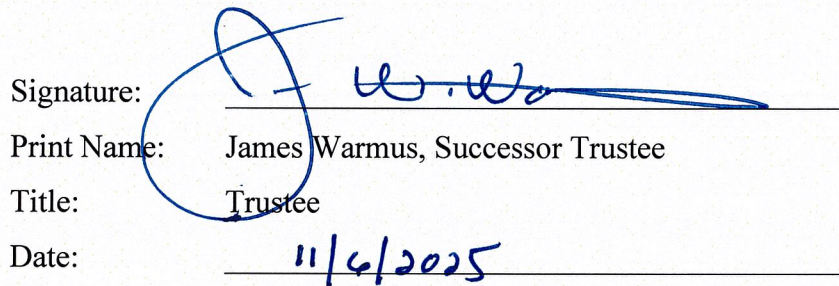 Signature: J W. Wa
Print Name: James Warmus, Successor Trustee
Title: Trustee
Date: 11/6/2025